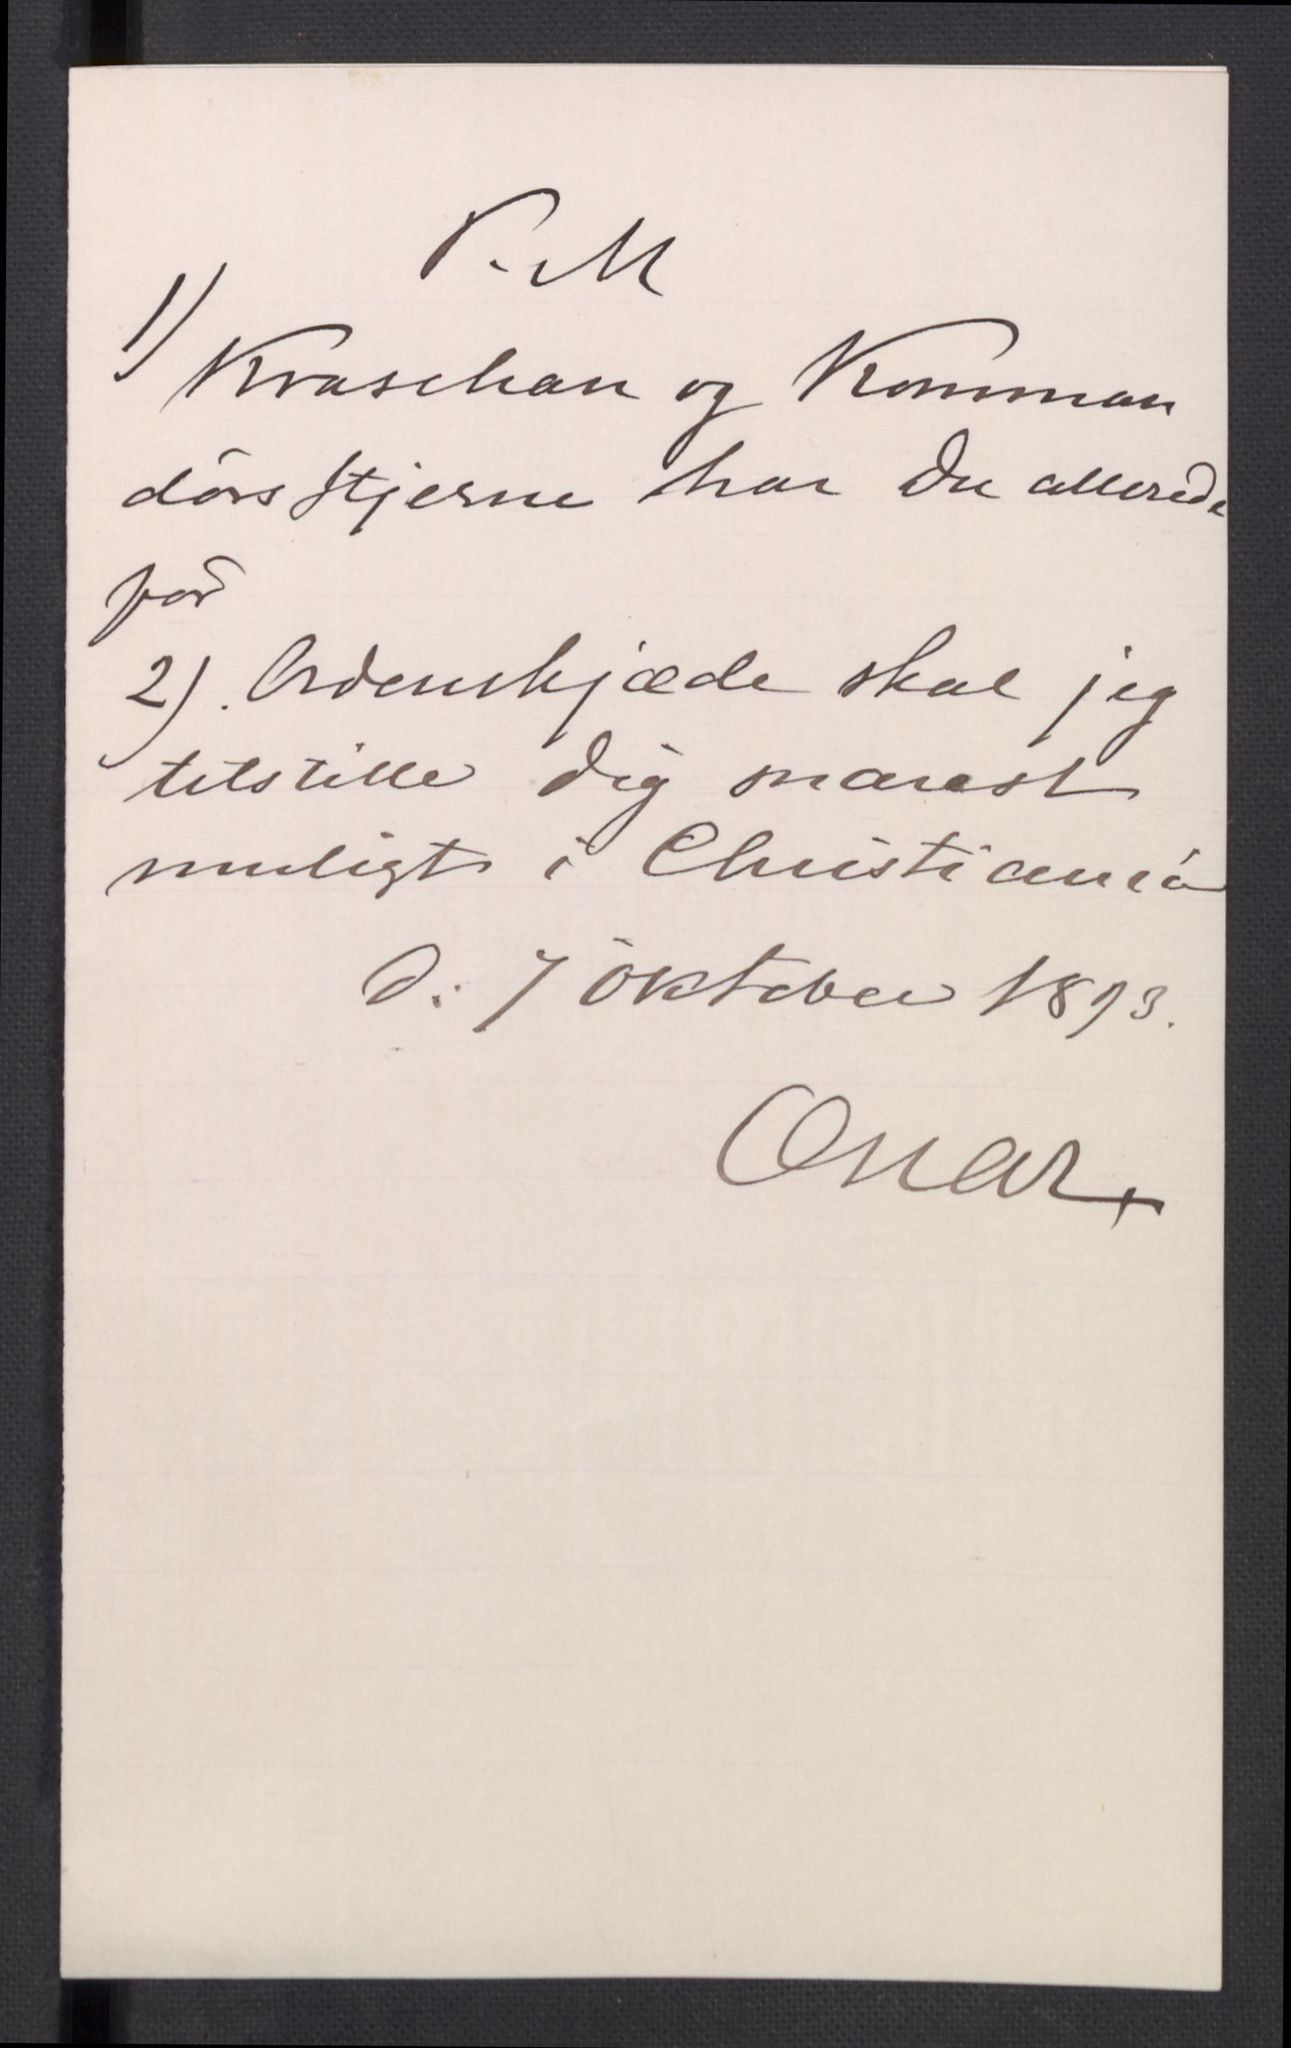 P. M
1)
Kraschan og Komman
dörs Stjerne har Du allerede
för
2). Ordenskjæde skal jeg
tilstille Dig snarest
muligt i Christiania
d. 7 Oktober 1893.
Oscar